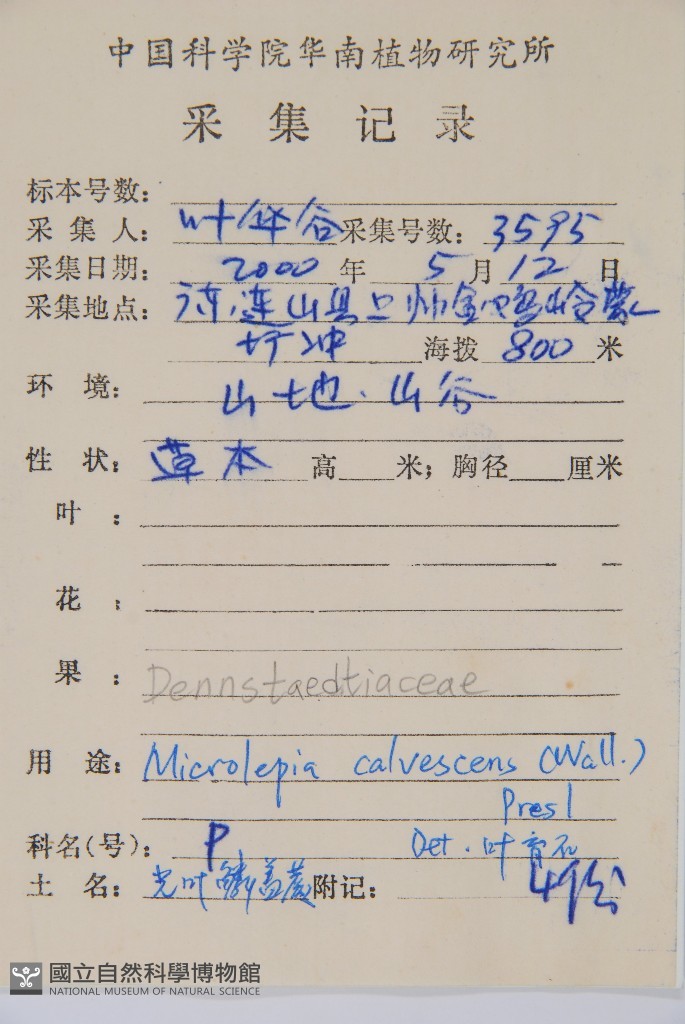 中国科学院华南植物研究所
采集记录
标本号数：
采集人：叶华谷采集号数：3595
采集日期：2000年5月12日
采集地点：连山县上帅金鸡岭
坪冲 海拨800米
环境：山地．山谷
性状：草本 高 米；胸径 厘米
叶：
花：
果：Dennstaedtiaceae
用途：Microlepia calvescens (Wall.)
Presl
科名(号)：P Det. 叶育石
土名：光叶鳞盖蕨附记：4份
國立自然科學博物館
NATIONAL MUSEUM OF NATURAL SCIENCE